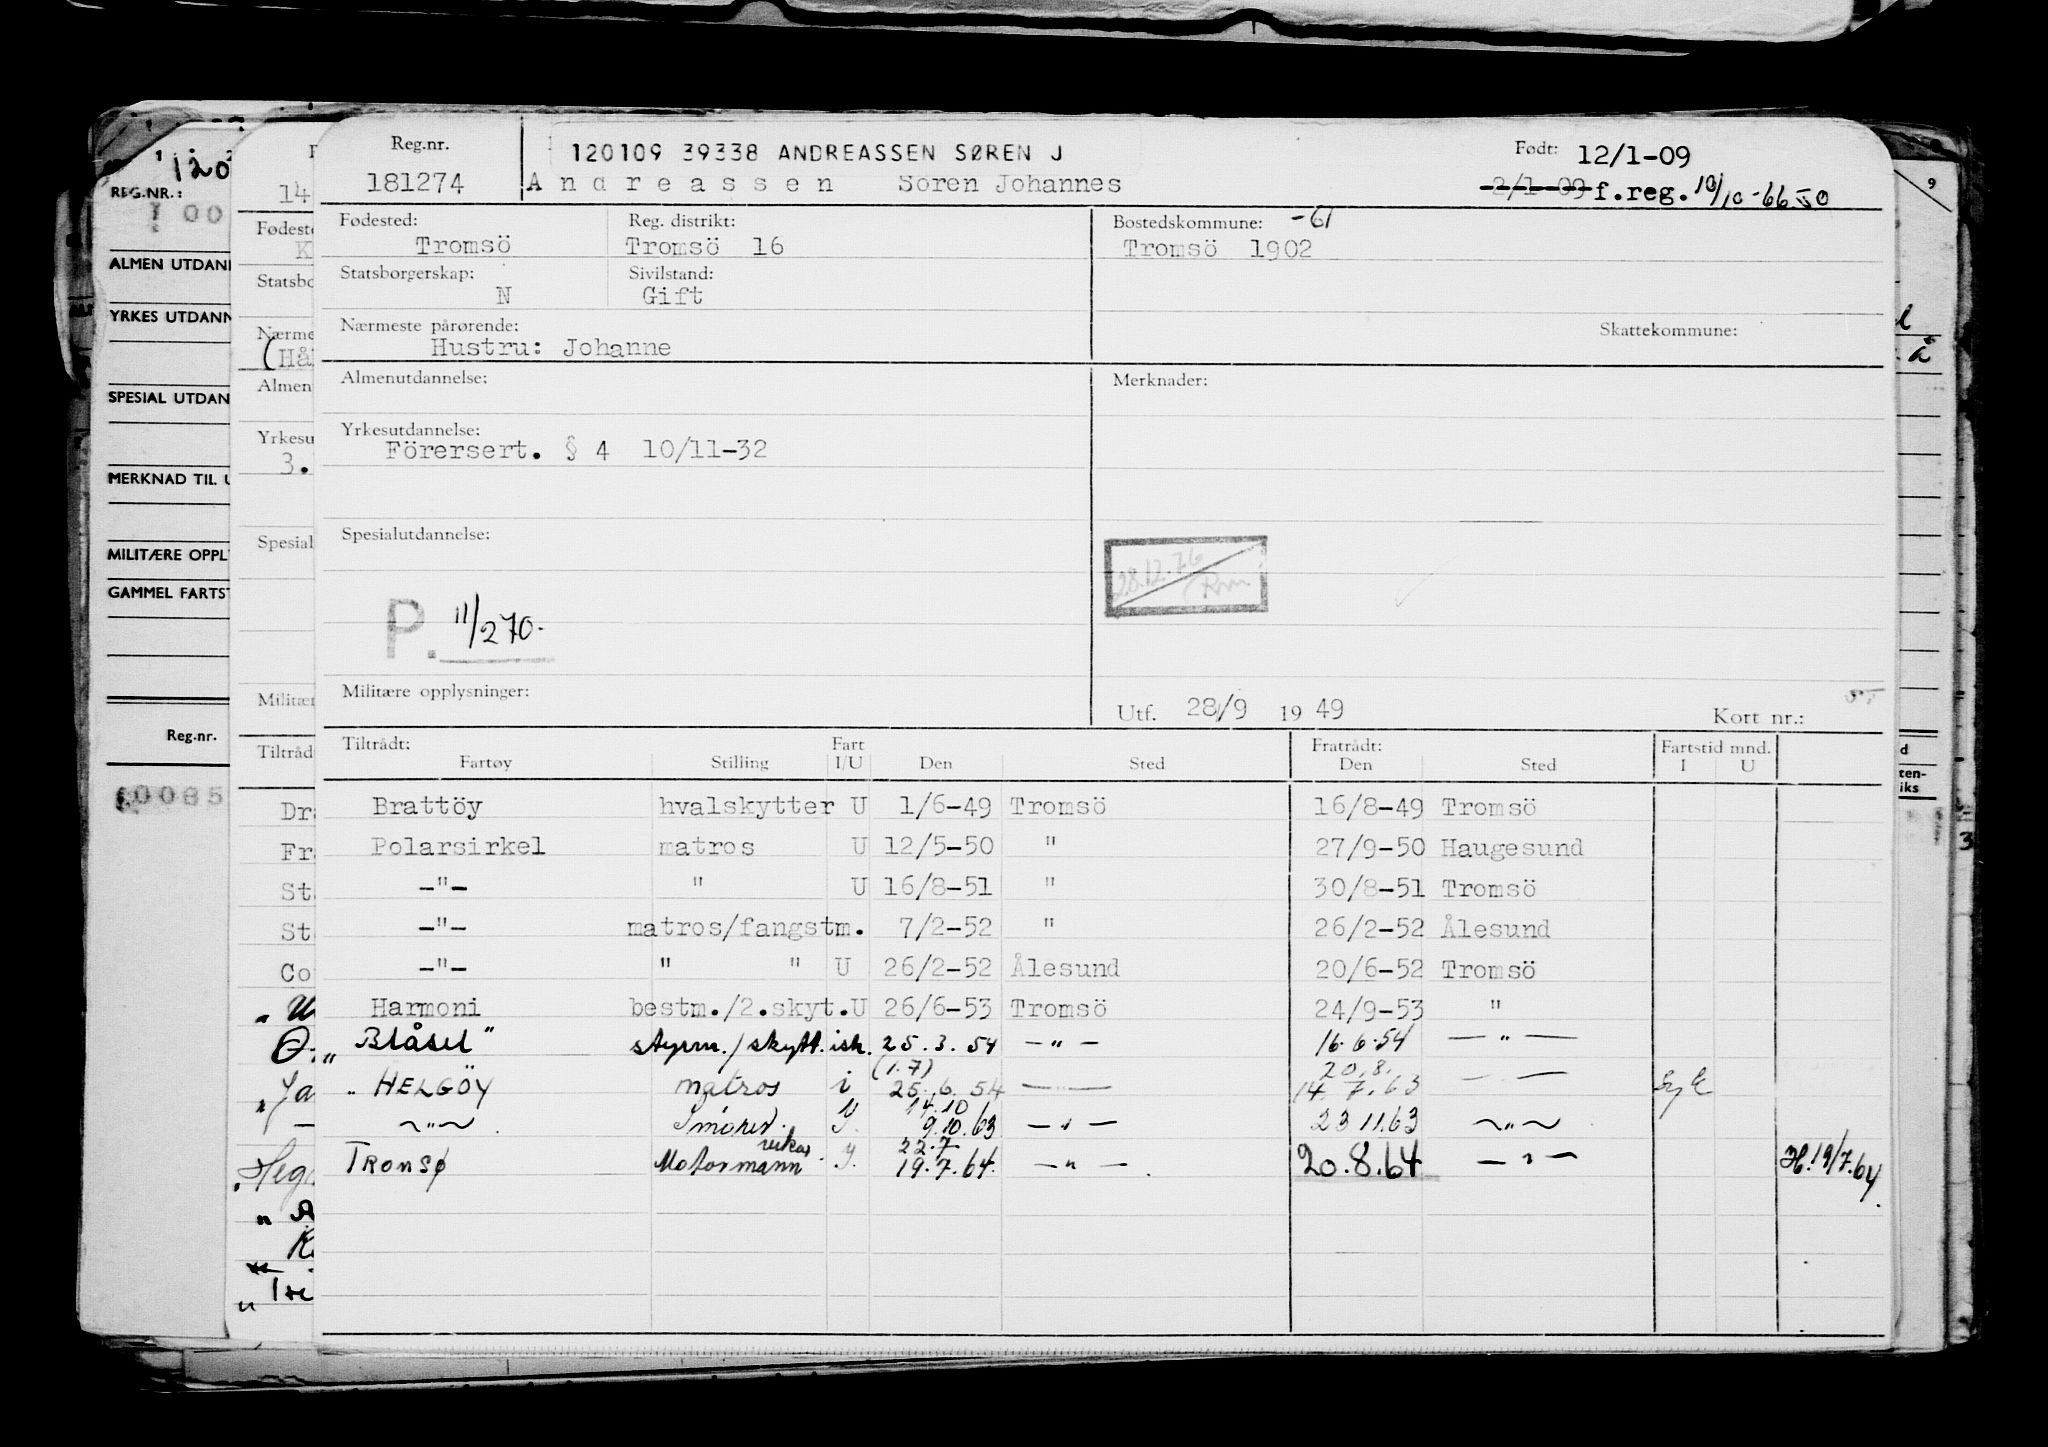 Reg.nr.
181274
120109 39338 ANDREASSEN SØREN J
Andreassen Sören Johannes
Født: 12/1-09
2/1-09 f.reg. 10/10-66
Fødested:
Tromsö
Reg. distrikt:
Tromsö 16
Bostedskommune: -61
Tromsö 1902
Statsborgerskap:
N
Sivilstand:
Gift
Nærmeste pårørende:
Hustru: Johanne
Skattekommune:
Almenutdannelse:
Merknader:
Yrkesutdannelse:
Förersert. § 4 10/11-32
Spesialutdannelse:
28.12.76
P. 11/270.
Militære opplysninger:
Utf. 28/9 19 49
Kort nr.:
Tiltrådt: Fratrådt: Fartstid mnd.
Fartøy Stilling Fart I/U Den Sted Den Sted I U
Brattöy hvalskytter U 1/6-49 Tromsö 16/8-49 Tromsö
Polarsirkel matros U 12/5-50 " 27/9-50 Haugesund
-"- " U 16/8-51 " 30/8-51 Tromsö
-"- matros/fangstm. 7/2-52 " 26/2-52 Ålesund
-"- " " U 26/2-52 Ålesund 20/6-52 Tromsö
Harmoni bestm./2.skyt. U 26/6-53 Tromsö 24/9-53 "
„Blåsel" styrm./skytt. ish. 25.3.54 -"- 16.6.54 -"-
(1.7) 20.8.
" HELGÖY matros i 25.6.54 14.7.63
14.10
-"- 9.10.63 -"- 23 11.63 -"-
vikar 22.7
TROMSØ Motormann 19.7.64 -"- 20.8.64 -"- H.19/7.64
REG.NR.:
ALMEN UTDANN
YRKES UTDANN
SPESIAL UTDAN
MERKNAD TIL U
MILITÆRE OPPL
GAMMEL FARTST
Reg.nr.